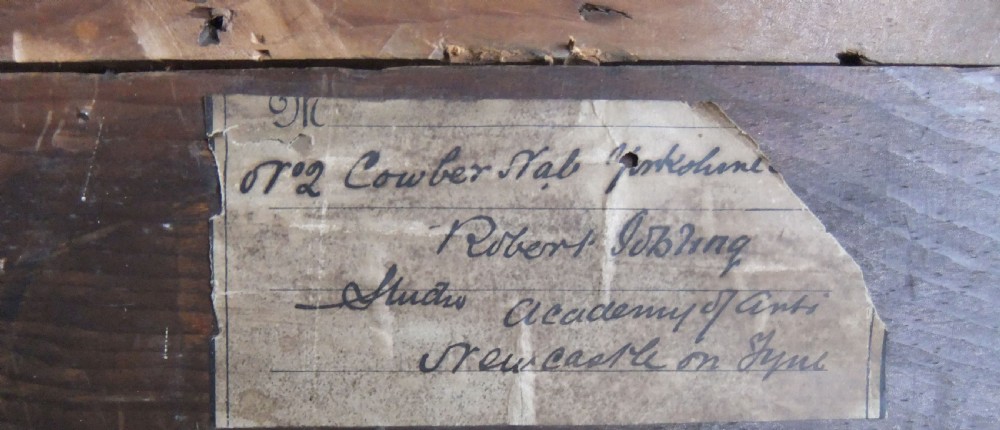 M
No 2 Cowber Nab Yorkshire
Robert Jobling
Studio Academy of Arts
Newcastle on Tyne